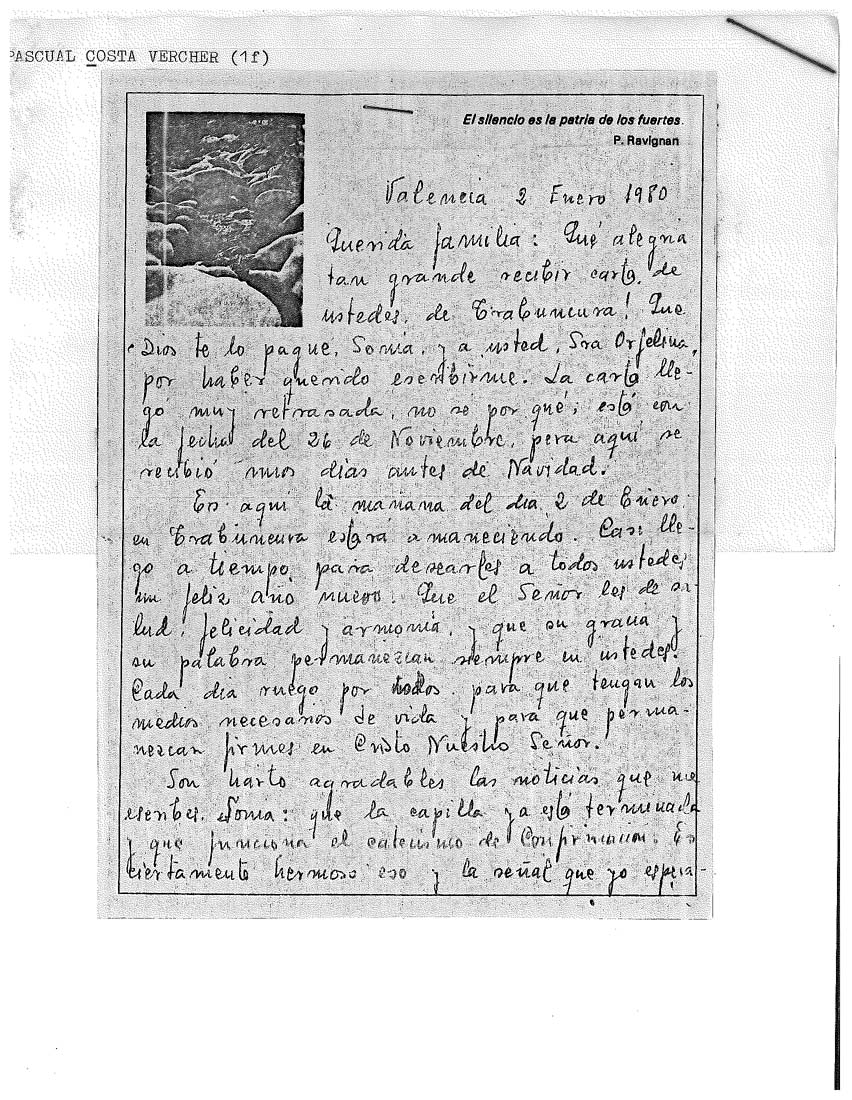 PASCUAL COSTA VERCHER (1f)
El silencio es la patria de los fuertes.
P. Ravignan
Valencia 2 Enero 1980
Querida familia: Qué alegria
tan grande recibir carta de
ustedes, de Trabuncura! Que
Dios te lo pague, Sonia, y a usted, Sra Orfelina,
por haber querido escribirme. La carta lle-
gó muy retrasada, no sé por qué; está con
la fecha del 26 de Noviembre, pera aquí se
recibió unos dias antes de Navidad.
Es aquí la mañana del dia 2 de Enero
en Trabuncura estará amaneciendo. Casi lle-
go a tiempo para desearles a todos ustedes
un feliz año nuevo. Que el Señor les de sa-
lud, felicidad y armonía, y que su gracia y
su palabra permanezcan siempre en ustedes.
Cada dia ruego por todos para que tengan los
medios necesarios de vida y para que perma-
nezcan firmes en Cristo Nuestro Señor.
Son harto agradables las noticias que me
escribes, Sonia: que la capilla ya está terminada
y que funciona el catecismo de Confirmación. Es
ciertamente hermoso eso y la señal que yo espera-